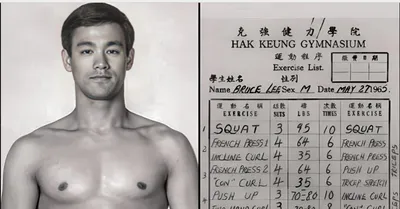 克強健力學院
HAK KEUNG GYMNASIUM
運動程序
Exercise List.
學生姓名 性別
Name BRUCE LEE Sex M. Date MAY 27 1965.
運動名稱 組數 磅 次數 運動名稱
EXERCISE SETS LBS TIMES EXERCISE
1 SQUAT 3 95 10 SQUAT
2 FRENCH PRESS 1 4 64 6 FRENCH PRESS
INCLINE CURL 4 35 6 INCLINE CURL
FRENCH PRESS 2 4 64 6 PUSH UP
"CON" CURL 4 35 6 TRICEP STRETCH
PUSH UP 3 70-80 10
TRICEPS